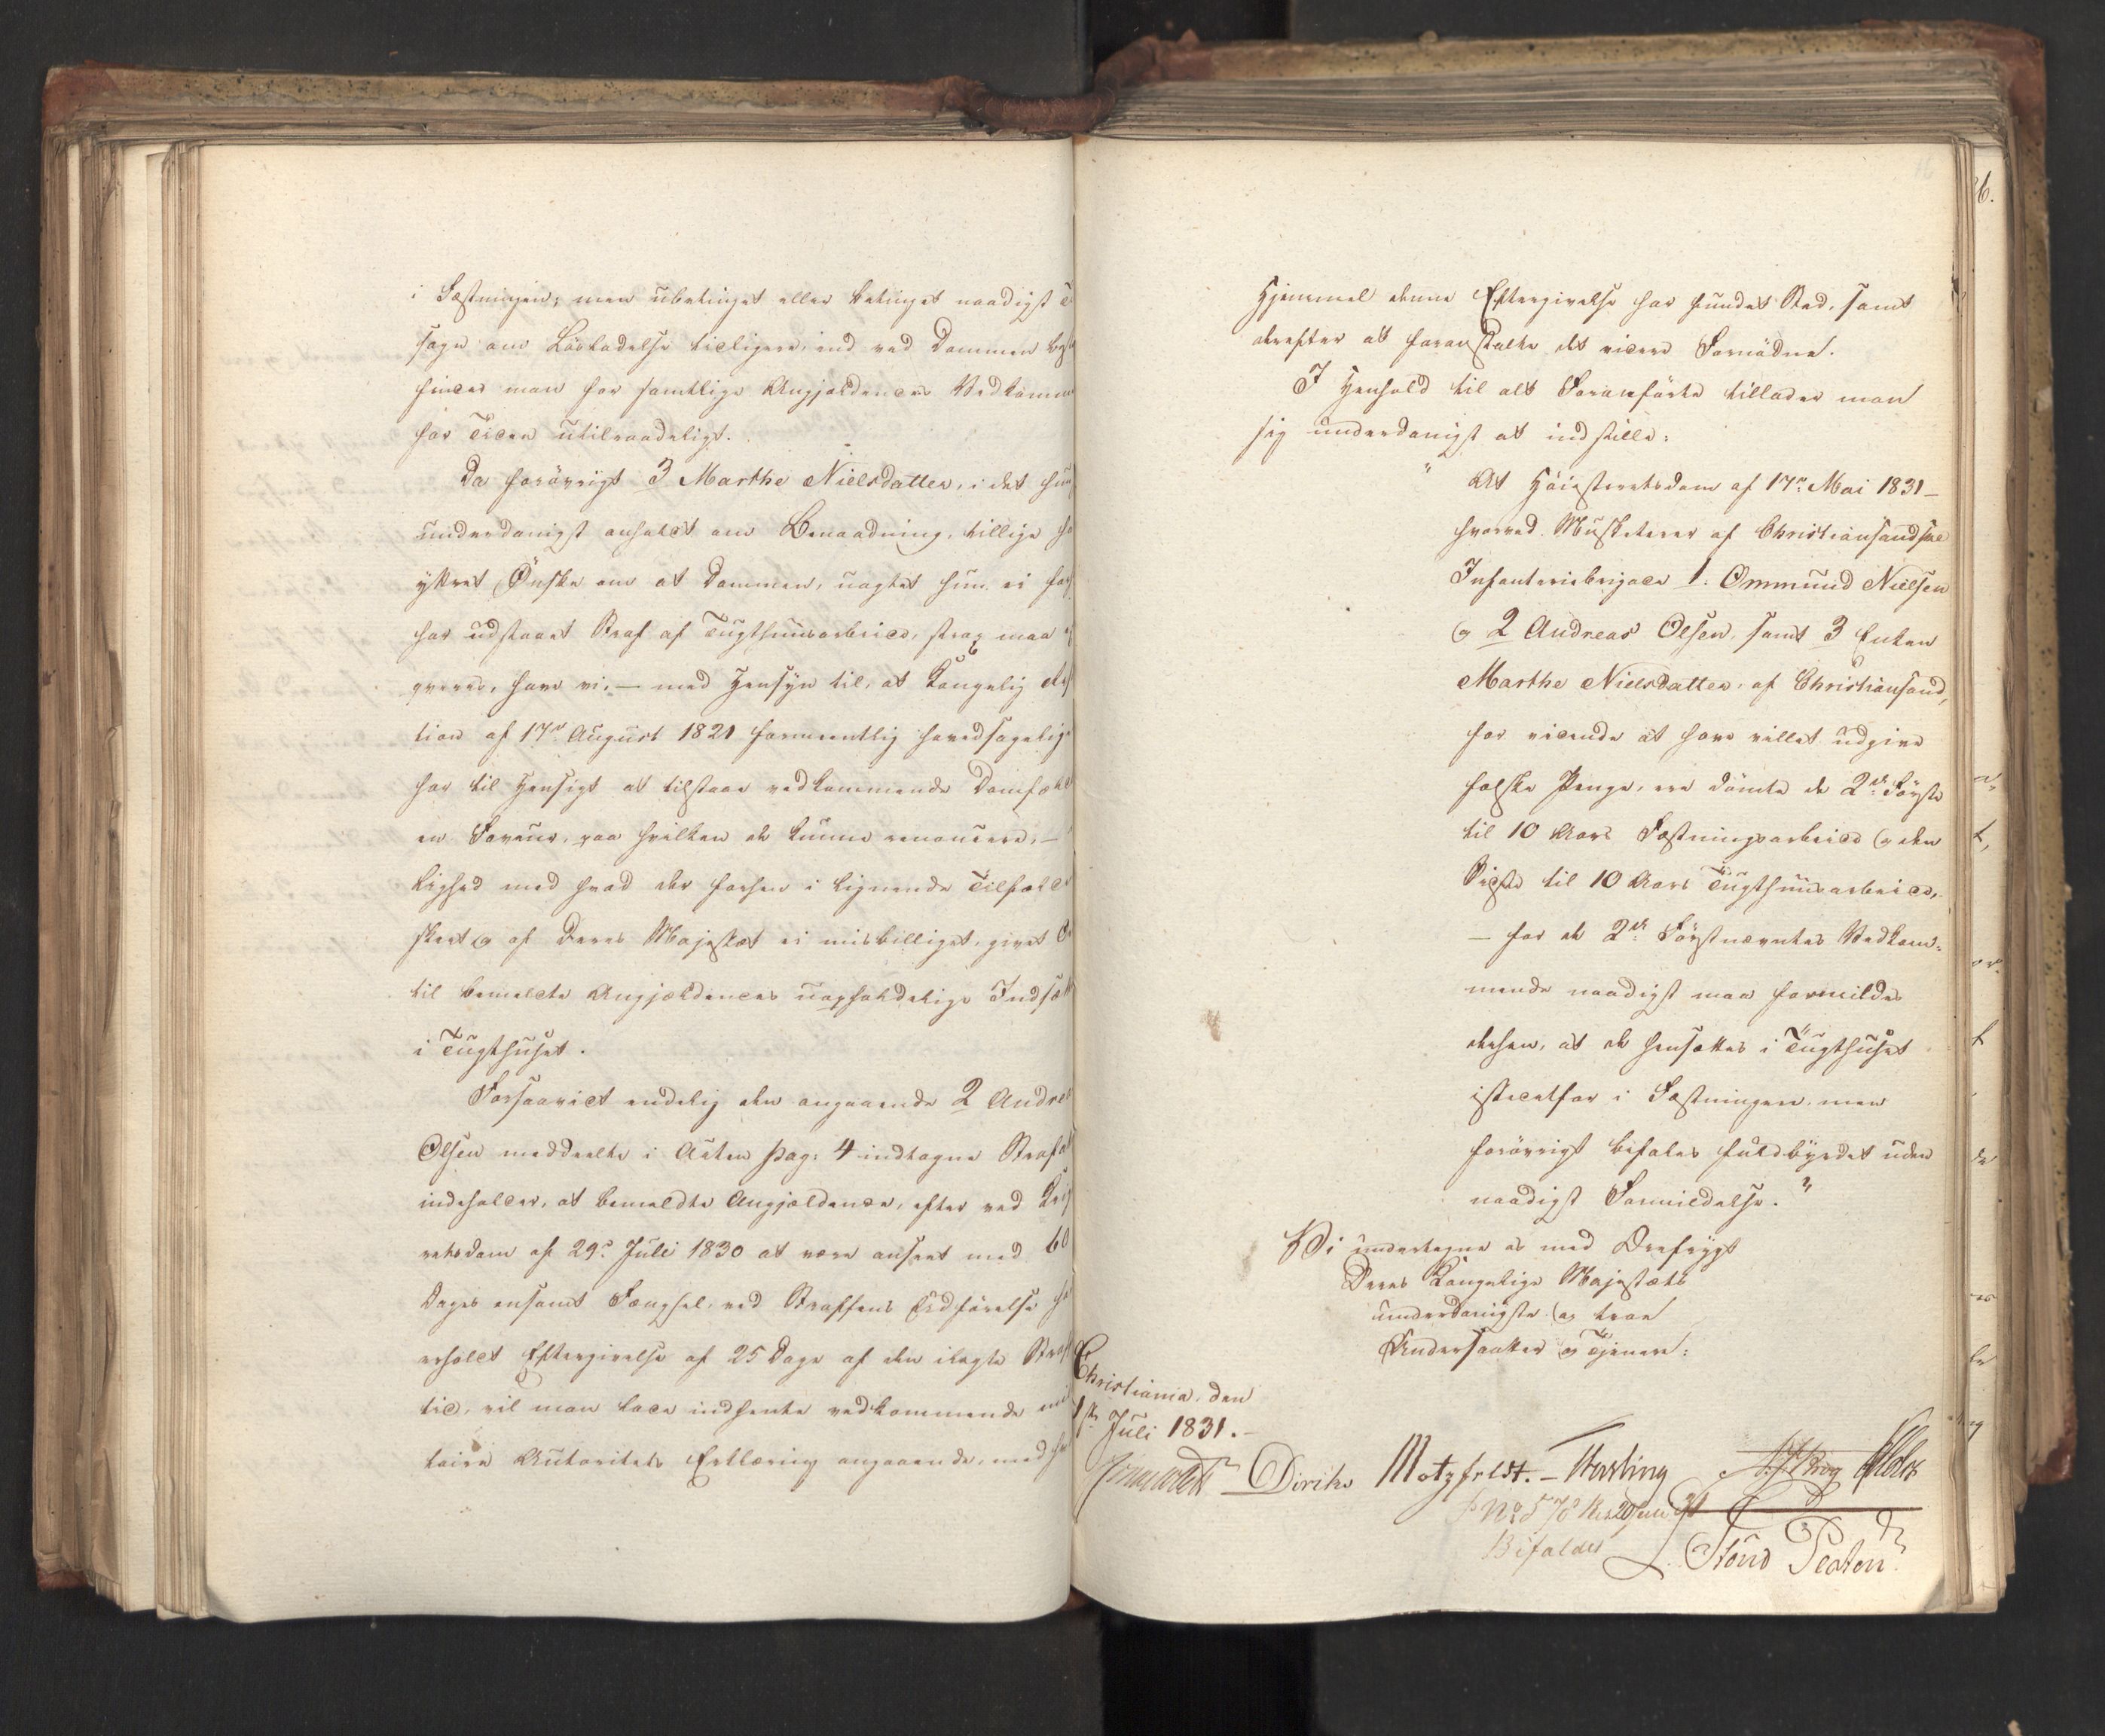 i Fæstningen; men ubetinget eller betinget naadigst T
sagn om Løsladelse tidligere, end ved Dommen be
findes man for samtlige Angjældendes Vedkomm
for Tiden utilraadeligt.
Da forövrigt 3 Marthe Nielsdatter, i det hun
underdanigst ansøkt om Benaadning, tillige ha
yttret Önske om at Dommen, uagtet hun ei før
har udstaaet Straf af Tugthuusarbeide, strax maa
qveres, have vi, – med Hensyn til, at Kongelig
tion af 17de August 1821 formeentlig hovedsagelig
har til Hensigt at tilstaae vedkommende Domfæld
en Faveur, paa hvilken de kunne renoncere, –
Lighed med hvad der forhen i lignende Tilfælde
skeet og af Deres Majestæt ei misbilliget, givet O
til bemeldte Angjældendes uopholdelige Indsætt
i Tugthuset.
Forsaavidt endelig den angaaende 2 Andre
Olsen meddeelte i Acten pag: 4 indtagne Strafat
indeholder, at bemeldte Angjældende, efter ved Krig
retsdom af 29de Juli 1830 at være anseet med 60
Dages eensomt Fængsel, ved Straffens Udförelse ha
erholdt Eftergivelse af 25 Dage af den ikagte Straf
tid, vil man lade indhente vedkommende mi
taire Autoritets Erklæring angaaende, med h
Hjemmel denne Eftergivelse har fundet Sted, samt
derefter at foranstalte det videre Fornödne.
I Henhold til alt Foranförte tillader man
sig underdanigst at indstille:
" At Höiesteretsdom af 17de Mai 1831 –
hvorved Musketerer af Christiansandske
Infanteriebrigade 1. Ommund Nielsen
og 2 Andreas Olsen, samt 3 Enken
Marthe Nielsdatter, af Christiansand,
for vidende at have villet udgive
falske Penge, ere dömte de 2de Förste
til 10 Aars Fæstningsarbeide og den
Sidste til 10 Aars Tugthuusarbeide,
– for de 2de Förstnævntes Vedkom-
mende naadigst maa formildes
derhen, at de hensættes i Tugthuset
istedetfor i Fæstningen, men
forövrigt befales fuldbyrdet uden
naadigst Formildelse."
Vi undertegne os med Ærefrygt
Deres Kongelige Majestæts
underdanigste og troe
Undersaatter og Tjenere:
Christiania, den
1ste Juli 1831. –
Diriks Motzfeldt. –
No 570 Res 20 Juli 31
Bifaldes